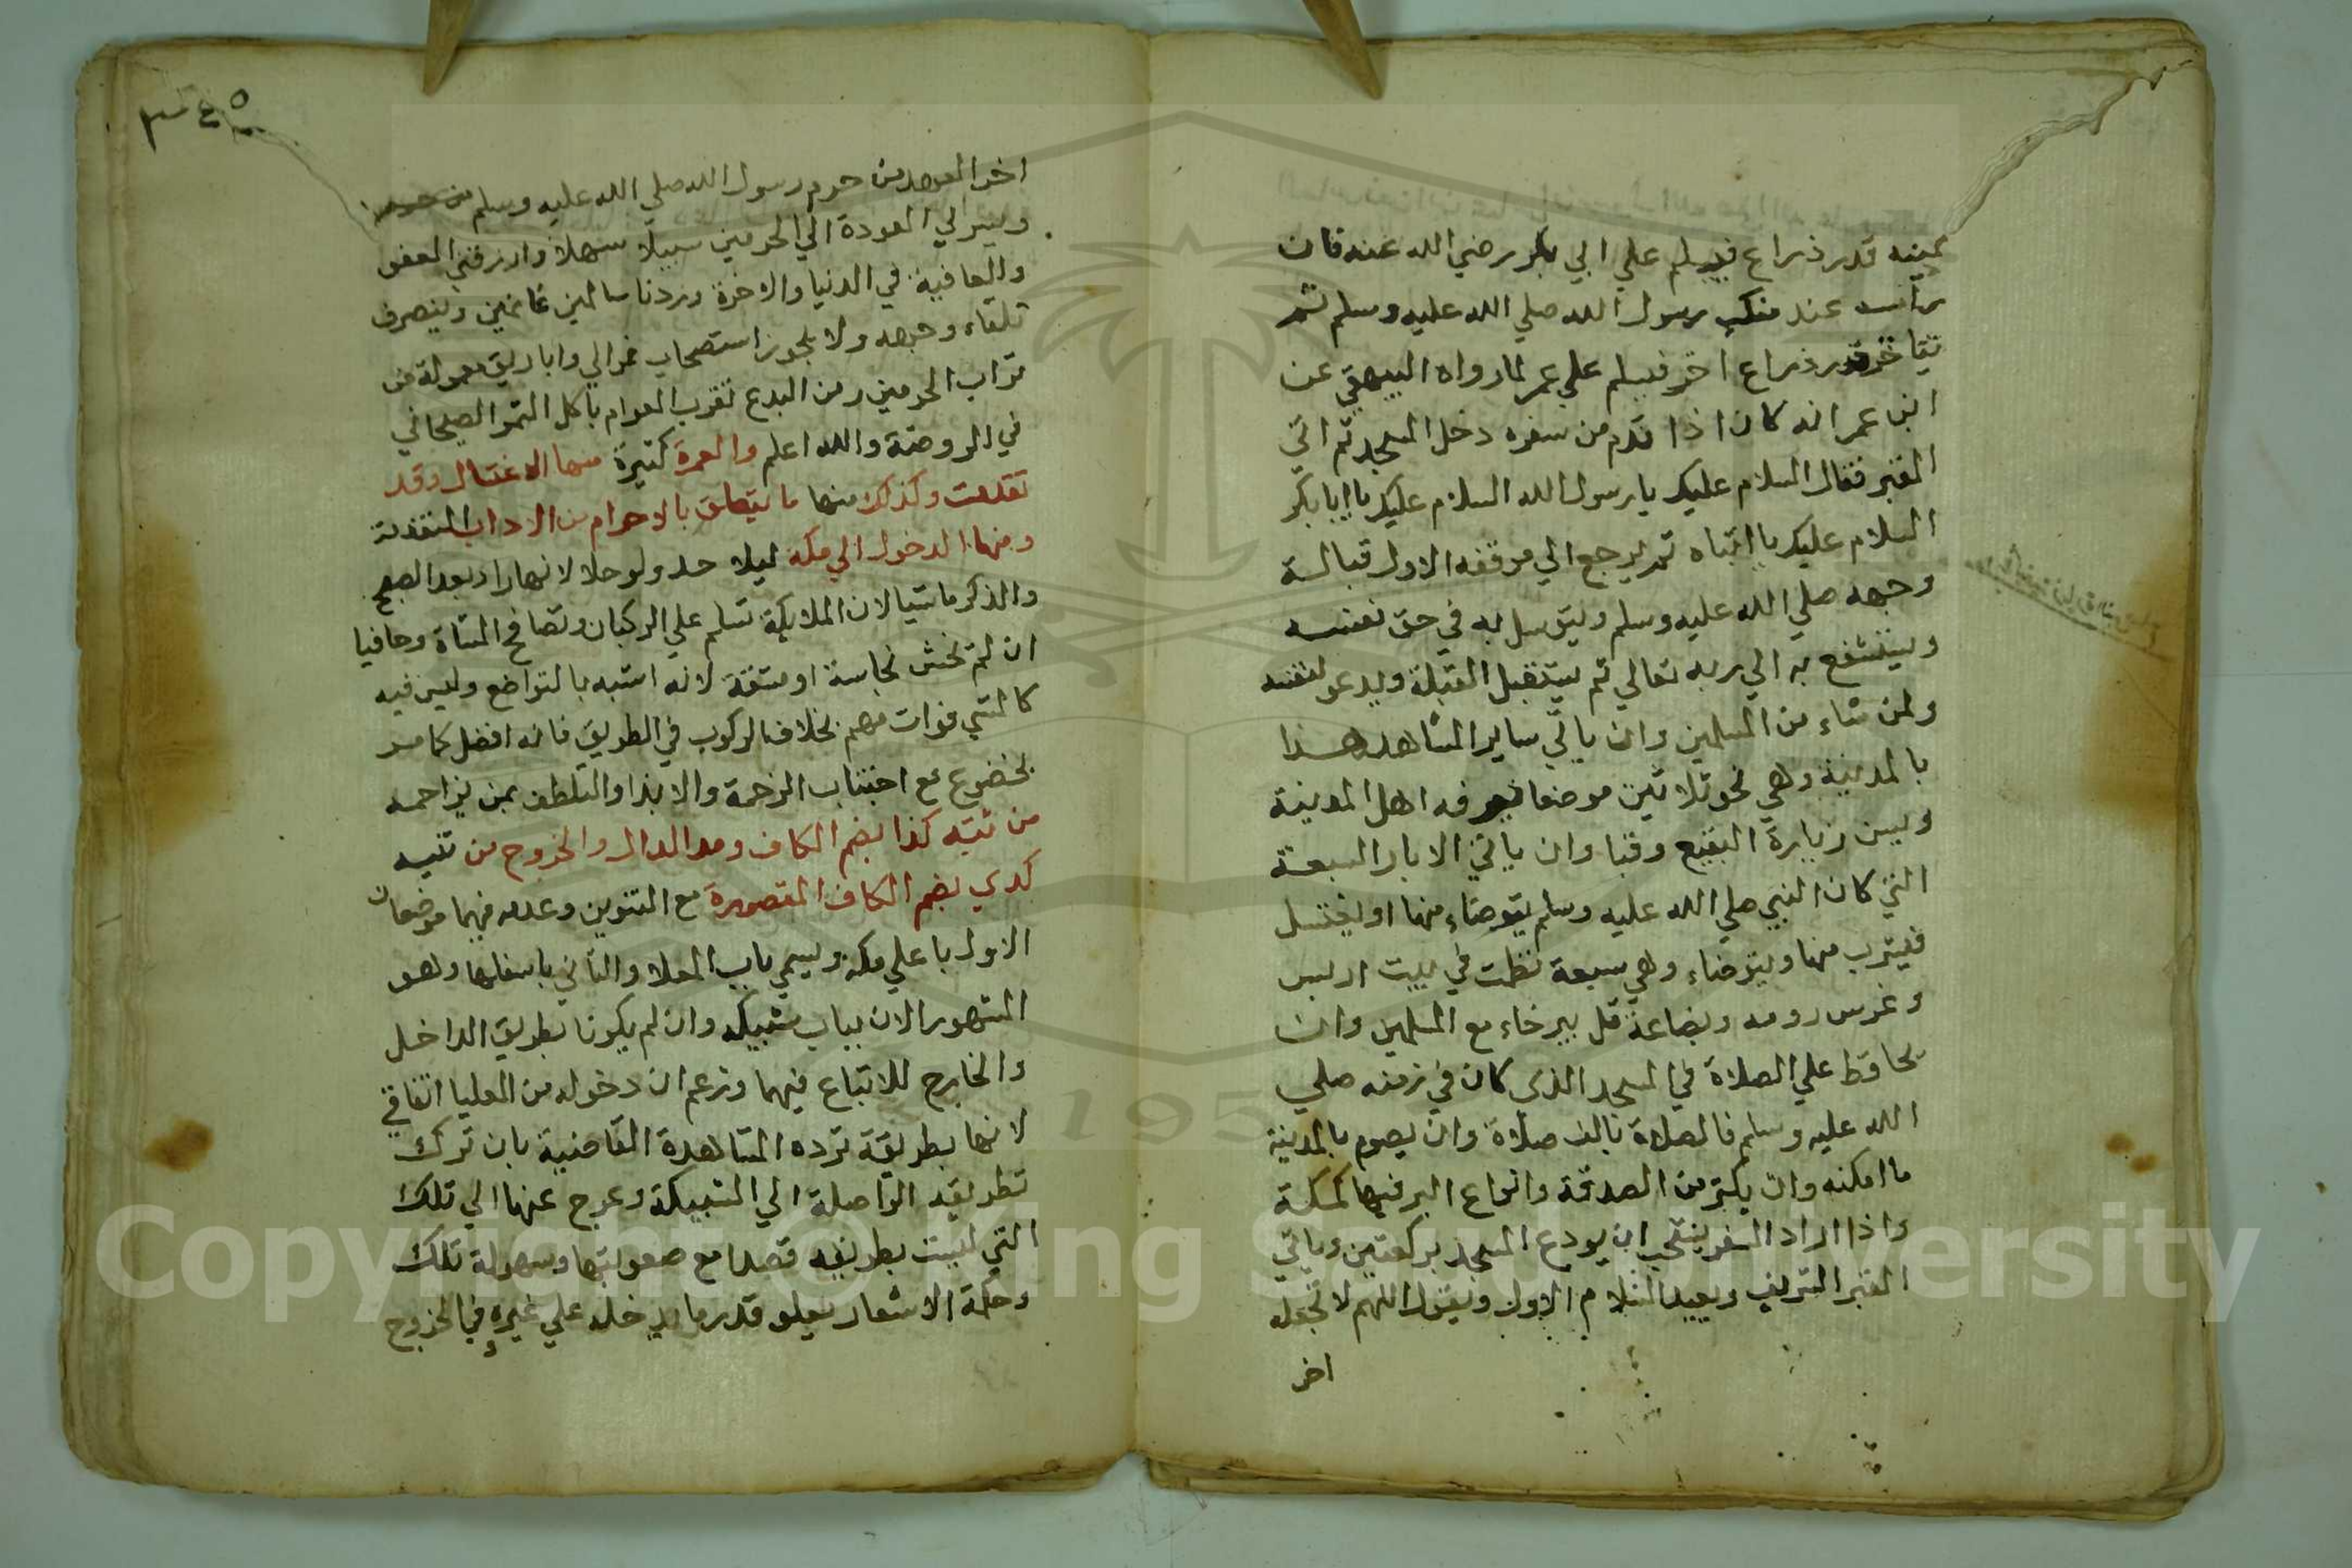 يمينه قدر ذراع فيسلم علي ابي بكر رضي الله عنه فان
راسه عند منكب رسول الله صلي الله عليه وسلم ثم
يتاخر قدر ذراع اخر فيسلم علي عمر لما رواه البيهقي عن
ابن عمر انه كان اذا قدم من سفره دخل المسجد ثم اتي
القبر فقال السلام عليك يا رسول الله السلام عليك يا ابا بكر
السلام عليك يا ابتاه ثم يرجع الي موقفه الاول قبالة
وجهه صلي الله عليه وسلم ويتوسل به في حق نفسه
ويستشفع به الي ربه تعالي ثم يستقبل القبلة ويدعو لنفسه
ولمن شاء من المسلمين وان ياتي ساير المشاهد
بالمدينة وهي نحو ثلاثين موضعا يعرفه اهل المدينة
ويسن زيارة البقيع وقبا وان ياتي الابار السبعة
التي كان النبي صلي الله عليه وسلم يتوضاء منها او يغتسل
فيشرب منها ويتوضاء وهي سبعة نظمت في بيت اريس
وغرس رومه وبضاعة قل بيرحاء مع وان
يحافظ علي الصلاة في المسجد الذي كان في زمنه صلي
الله عليه وسلم فالصلاة بالف صلاة وان يصوم بالمدينة
ما امكنه وان يكثر من الصدقة وانواع البر فيها كمكة
واذا اراد السفر يستحب ان يودع المسجد بركعتين وياتي
القبر الشريف ويعيد السلام الاول ويقول اللهم لا تجعله
اخر
٣٤٥
اخر العهد من حرم رسول الله صلي الله عليه وسلم
ويسر لي العودة الي الحرمين سبيلا سهلا وارزقني العفو
والعافية في الدنيا والاخرة وردنا سالمين غانمين وينصرف
تلقاء وجهه ولا يجوز استصحاب واباريق معمولة من
تراب الحرمين ومن البدع تقرب العوام باكل التمر الصيحاني
في الروضة والله اعلم والعمرة كثيرة منها الاغتسال وقد
تقدمت وكذلك منها ما يتعلق بالاحرام من الاداب المتقدمة
ومنها الدخول الي مكه ليلا نهارا وبعد الصبح
والذكر ماشيا لان الملايكة تسلم علي الركبان وتصافح المشاة وحافيا
ان لم يخش نجاسة او مشقة لانه اشبه بالتواضع وليس فيه
كالمشي فوات مهم بخلاف الركوب في الطريق فانه افضل كما مر
بخضوع مع اجتناب الزحمة والايذا والتلطف بمن يزاحمه
من ثنيه كذا بضم الكاف ومد الدال والخروج من ثنيه
كدي بضم الكاف المقصورة مع التنوين وعدمه فيهما موضعان
الاول باعلي مكه ويسمي باب المعلا والثاني باسفلها وهو
المشهور الان بباب شبيكه وان لم يكونا بطريق الداخل
والخارج للاتباع فيهما وزعم ان دخوله من العليا اتفاقي
لانها بطريقة ترده المشاهدة القاضية بان ترك
الواصلة الي الشبيكة وعرج عنها الي تلك
التي ليست بطريقه قصدا مع صعوبتها وسهولة تلك
وحكمة الاشعار بعلو قدر ما يدخله علي غيره في الخروج